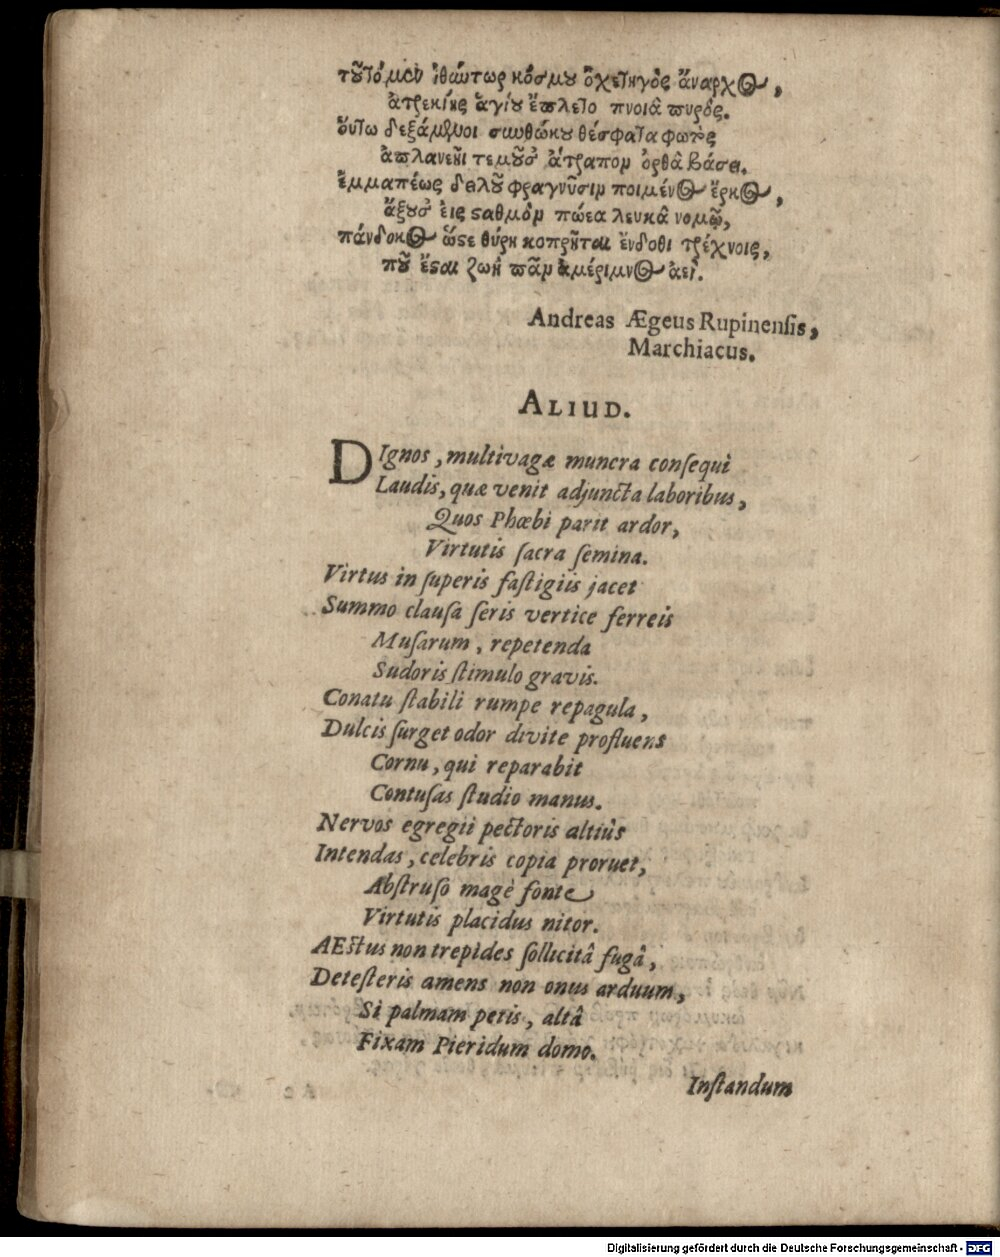 τȣ͂το μὲν ἰθάντωρ κόσμȣ ὀχετηγὸς ἄναρχος,
ἀτρεκίης ἁγίȣ ἔπλετο πνοιᾶ πυρός.
ȣ̔́τω δεξάμϟροι θέσφατα φωτὸς
ἀπλανεῆι ἀτραπὸν ὀρθᾶ βάσει.
ἐμμαπέως φραγνῦσιν ποιμένος ἕρκος,
ἄξȣσ' εἰς ϛαθμὸν πώεα λευκὰ νομῷ,
πάνδοκος ὥϛε θύρη ἔνδοθι τρέχνοις,
πȣ͂ ἔϛαι ζωὴ πᾶν ἀμέριμνος ἀεί.
Andreas Ægeus Rupinenſis,
Marchiacus.
ALIUD.
DIgnos, multivagæ munera conſequi
Laudis, quæ venit adjuncta laboribus,
Quos Phœbi parit ardor,
Virtutis ſacra ſemina.
Virtus in ſuperis faſtigiis jacet
Summo clauſa ſeris vertice ferreis
Muſarum, repetenda
Sudoris ſtimulo gravis.
Conatu ſtabili rumpe repagula,
Dulcis ſurget odor divite profluens
Cornu, qui reparabit
Contuſas ſtudio manus.
Nervos egregii pectoris altiùs
Intendas, celebris copia proruet,
Abſtruſo magè fonte
Virtutis placidus nitor.
AEſtus non trepides ſollicitâ fugâ,
Deteſteris amens non onus arduum,
Si palmam petis, altâ
Fixam Pieridum domo.
Inſtandum
Digitalisierung gefördert durch die Deutsche Forschungsgemeinschaft - DFG